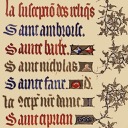 la susception des reliqs
Saint ambroise.
Sainte barbe.
Saint nicolas
Sainte fare.
la 9cept' n're dame.
Saint ciprian